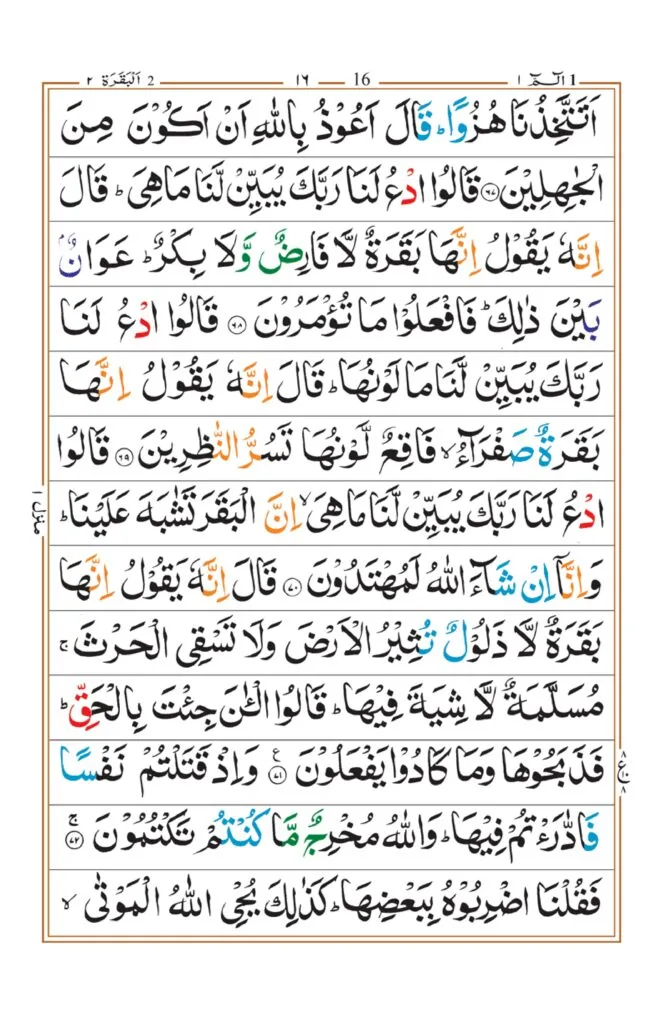 2 اَلْبَقَرَة ٢ ١٦ 16 الٓمّٓ ١ 1
اَتَتَّخِذُنَا هُزُوًا ؕ قَالَ اَعُوْذُ بِاللّٰهِ اَنْ اَكُوْنَ مِنَ
الْجٰهِلِيْنَ ﴿٦٧﴾ قَالُوا ادْعُ لَنَا رَبَّكَ يُبَيِّنْ لَّنَا مَا هِىَ ؕ قَالَ
اِنَّهٗ يَقُوْلُ اِنَّهَا بَقَرَةٌ لَّا فَارِضٌ وَّلَا بِكْرٌ ؕ عَوَانٌۢ
بَيْنَ ذٰلِكَ ؕ فَافْعَلُوْا مَا تُؤْمَرُوْنَ ﴿٦٨﴾ قَالُوا ادْعُ لَنَا
رَبَّكَ يُبَيِّنْ لَّنَا مَا لَوْنُهَا ؕ قَالَ اِنَّهٗ يَقُوْلُ اِنَّهَا
بَقَرَةٌ صَفْرَآءُ ۙ فَاقِعٌ لَّوْنُهَا تَسُرُّ النّٰظِرِيْنَ ﴿٦٩﴾ قَالُوا
ادْعُ لَنَا رَبَّكَ يُبَيِّنْ لَّنَا مَا هِىَ ۙ اِنَّ الْبَقَرَ تَشٰبَهَ عَلَيْنَا ؕ
وَاِنَّآ اِنْ شَآءَ اللّٰهُ لَمُهْتَدُوْنَ ﴿٧٠﴾ قَالَ اِنَّهٗ يَقُوْلُ اِنَّهَا
بَقَرَةٌ لَّا ذَلُوْلٌ تُثِيْرُ الْاَرْضَ وَلَا تَسْقِى الْحَرْثَ ۚ
مُسَلَّمَةٌ لَّا شِيَةَ فِيْهَا ؕ قَالُوا الْـٰٔنَ جِئْتَ بِالْحَقِّ ؕ
فَذَبَحُوْهَا وَمَا كَادُوْا يَفْعَلُوْنَ ﴿٧١﴾ ع وَاِذْ قَتَلْتُمْ نَفْسًا
فَادّٰرَءْتُمْ فِيْهَا ؕ وَاللّٰهُ مُخْرِجٌ مَّا كُنْتُمْ تَكْتُمُوْنَ ۚ ﴿٧٢﴾
فَقُلْنَا اضْرِبُوْهُ بِبَعْضِهَا ؕ كَذٰلِكَ يُحْىِ اللّٰهُ الْمَوْتٰى ۙ
منزل ١